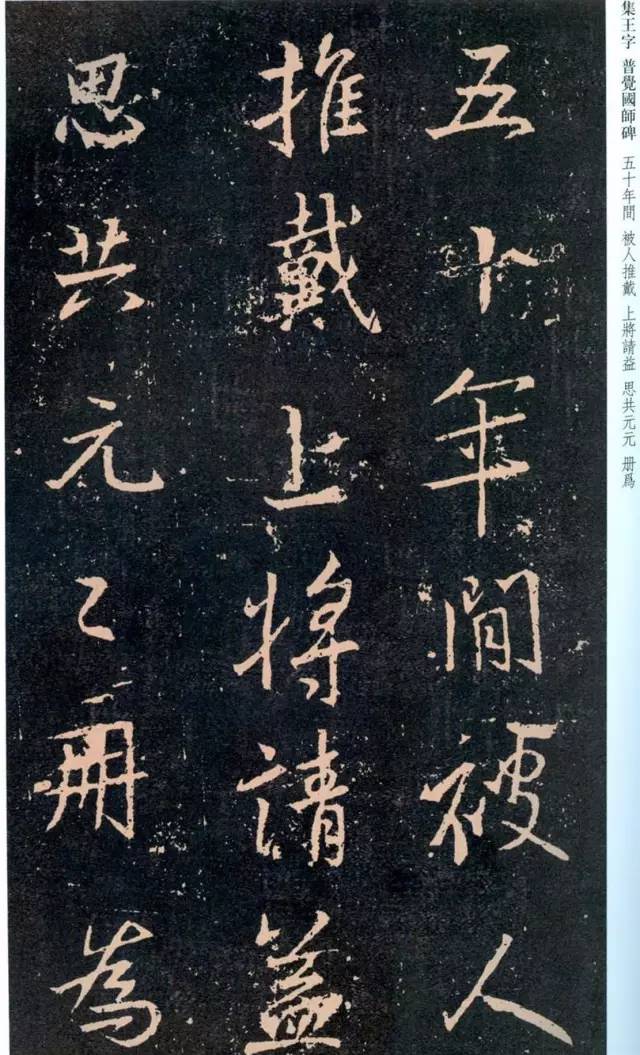 集王字 普覺國師碑 五十年間 被人推戴 上將請益 思共元元 册爲
五十年間被人
推戴上將請益
思共元〻册為